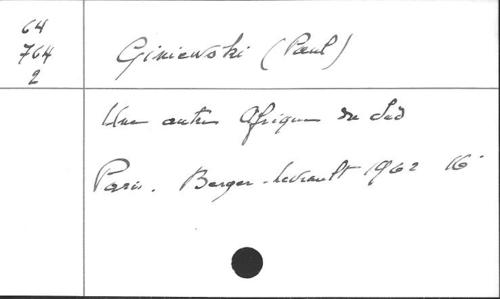 64
764
2
Giniewski (Paul)
Une autre Afrique du Sud
Paris. Berger-Levrault 1962 16°